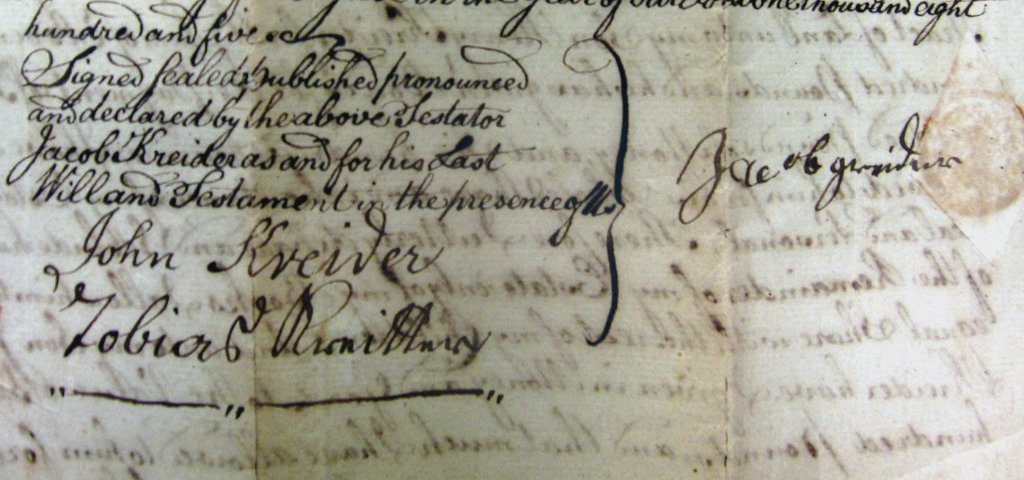 in the year of our Lord one thousand eight
hundred and five
Signed sealed published pronounced
and declared by the above Testator
Jacob Kreider as and for his Last
Will and Testament in the presence of Us
Jacob greider
John Kreider
Tobias Kreitter